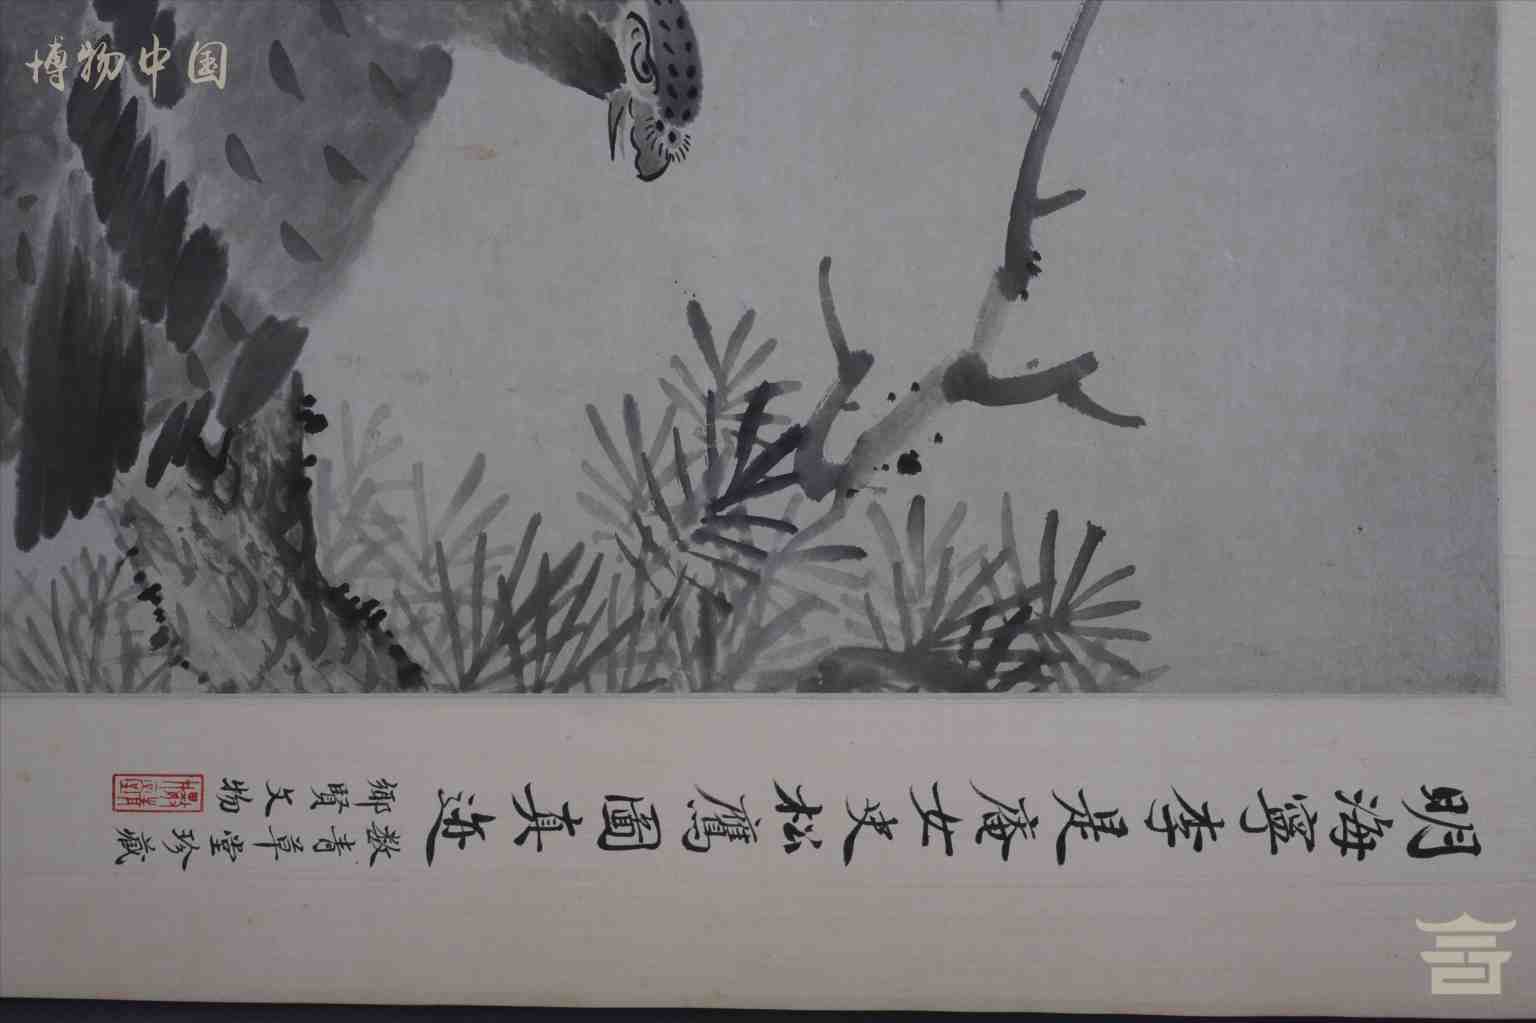 博物中国
明海寧李是庵女史松鷹圖真迹
鄉賢文物
數青草堂珍藏